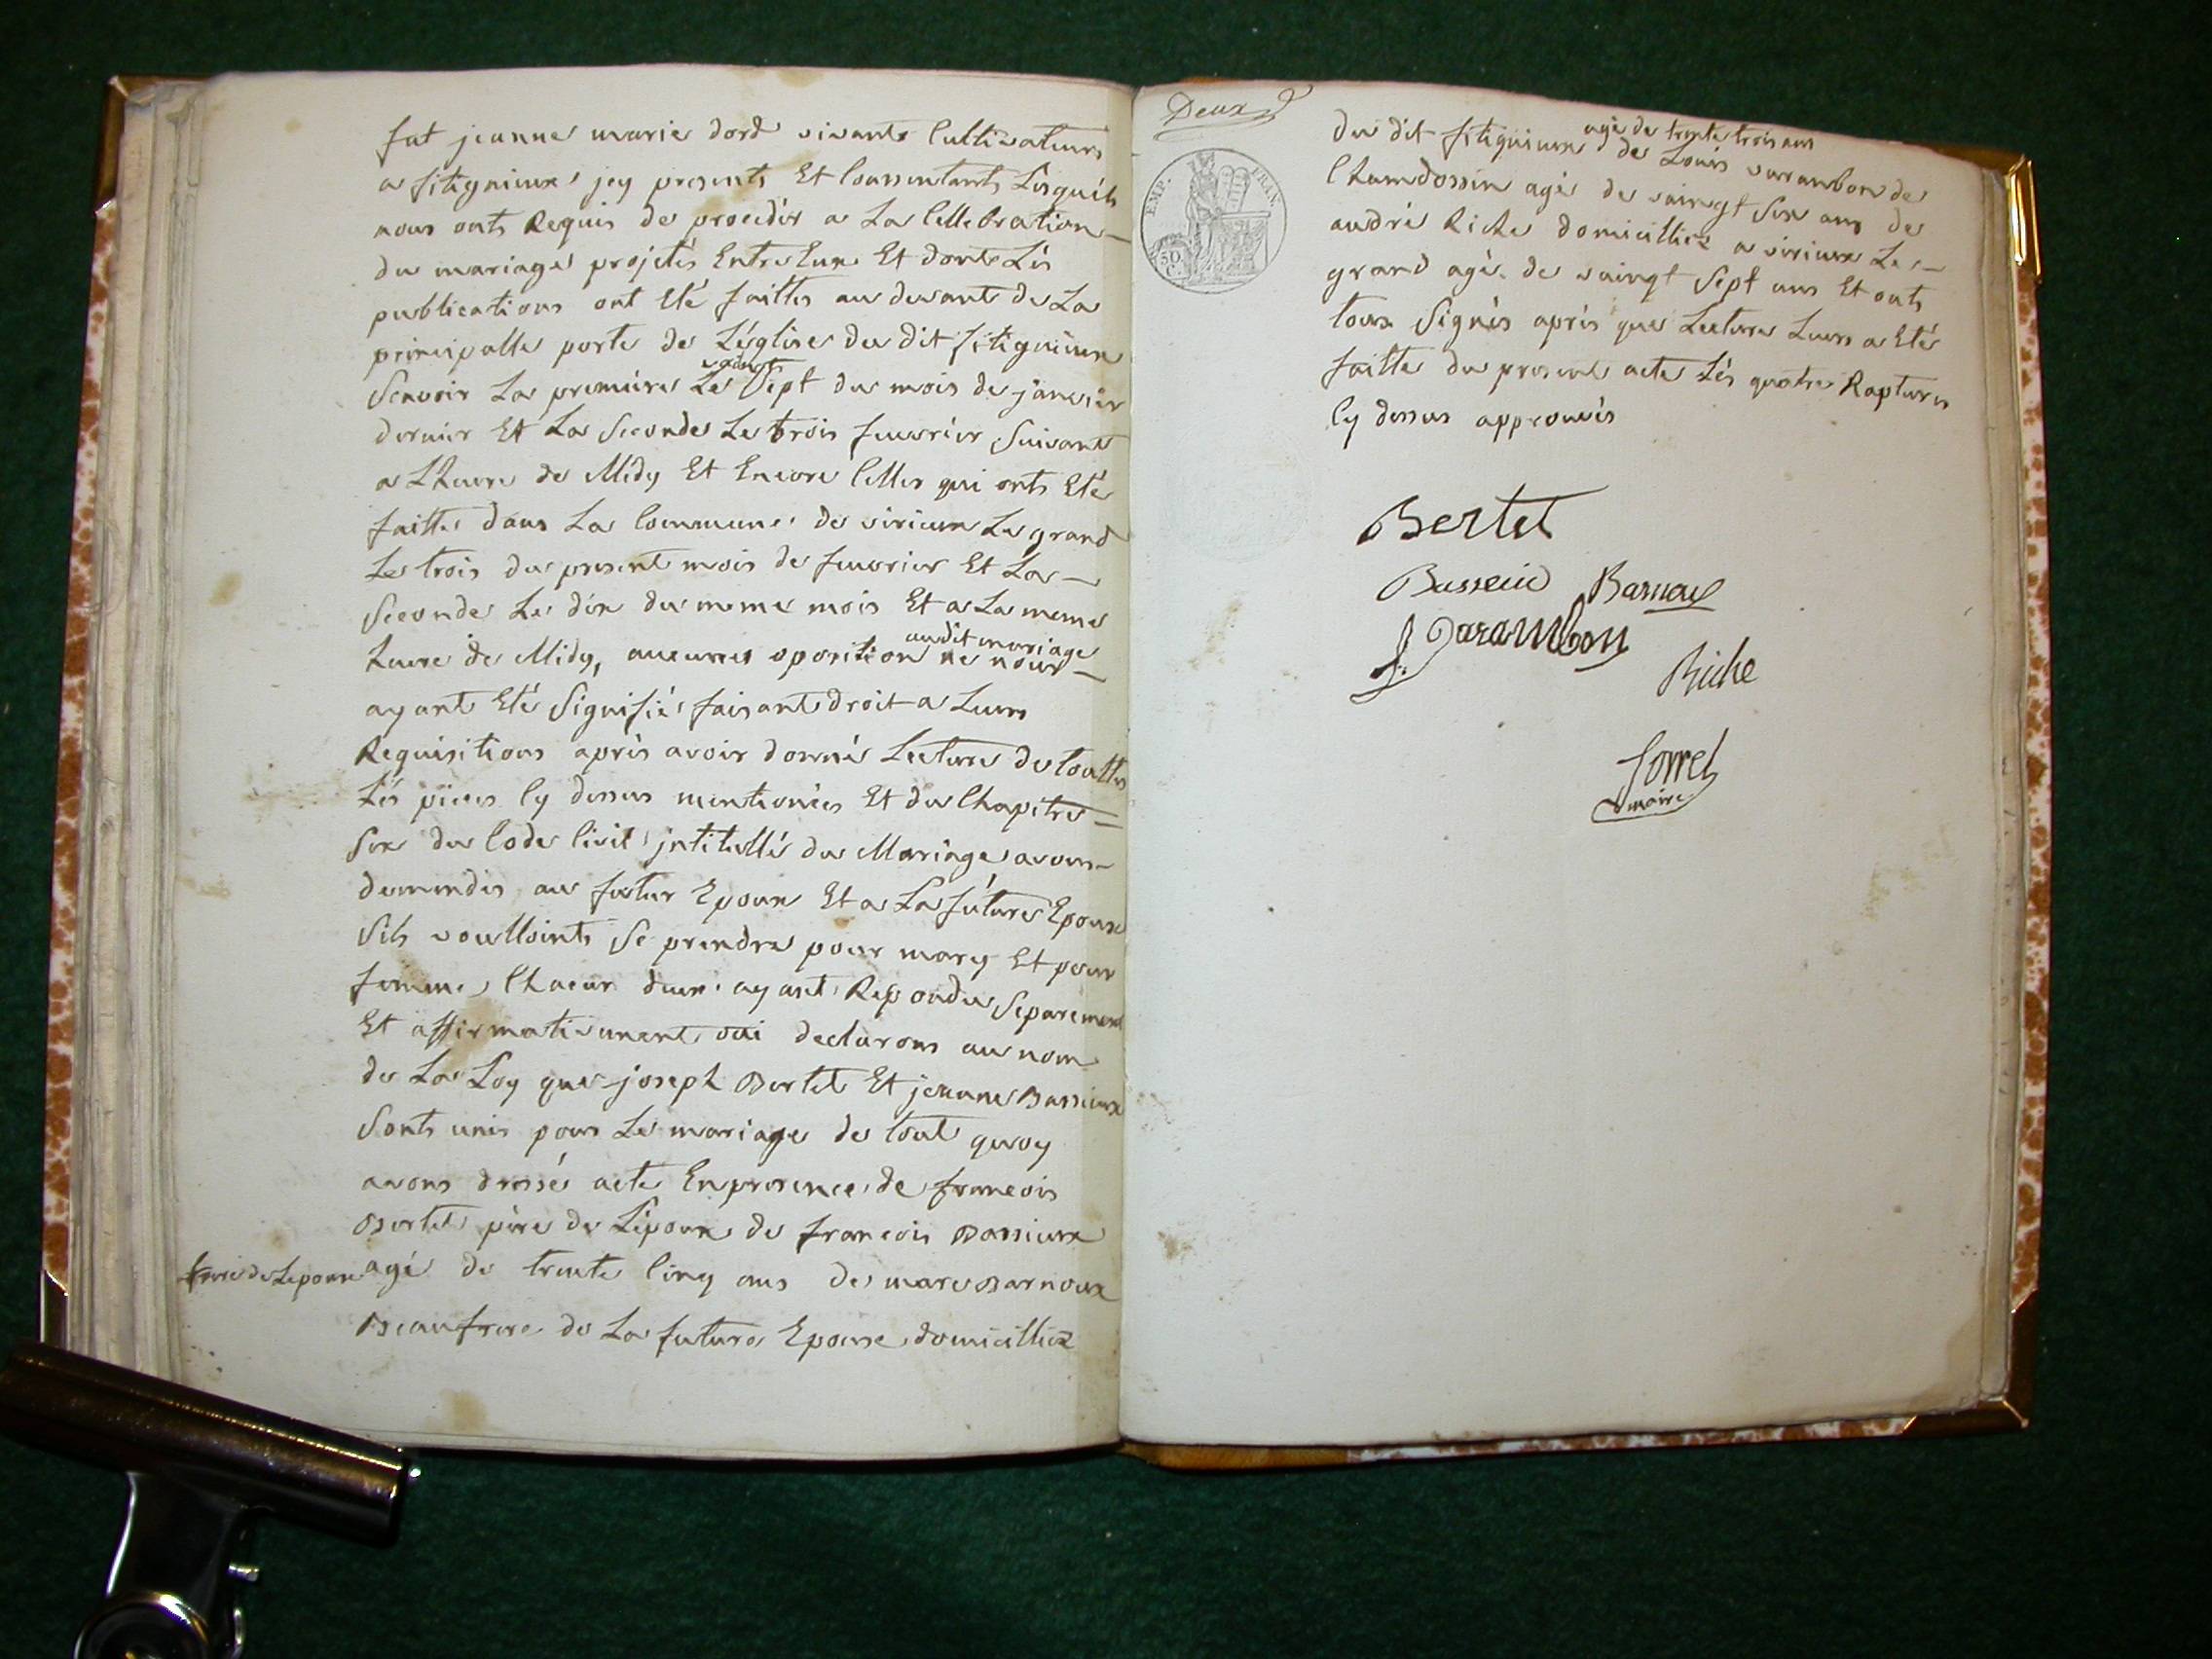 fut jeanne marie dord vivants Cultivateurs
a fitignieux jcy presents Et Conssentants Lesquels
nous onts Requis de procedér a La Cellebration
du mariage projetés Entre Eux Et donts Lés
publications ont Eté faittes au devant de La
principalle porte de L'église du dit fitignieux
Scavoir La premiére Le vaingt Sept du mois de janviér
dernier Et La Seconde Le trois feuvriér Suivant
a L'heure de Midy Et Encore Celles qui onts Eté
faittes dans La Commune de virieux Le grand
Le trois du present mois de feuvrier Et La
Seconde Le dix du meme mois Et a La meme
heure de Midy, aucunes oposition audit mariage ne nous
ayant Eté Signifié faisant droit a Leurs
Requisitions aprés avoir donné Lecture de touttes
Lés piéces Cy dessus mentionées Et du Chapitre
Six du Code Civil jntitullé du Mariage avons
demandés au futur Epoux Et a La future Epouse
Sils voulloints Se prendre pour mary Et pour
femme, Chacun deux ayant Repondu Separement
Et affirmativement oui declarons au nom
de La Loy que joseph Bertet Et jeanne Bassieux
Sonts unis pour Le mariage de tout quoy
avons dressé acte En presence de francois
Bertet pére de L'epoux de francois Bassieux
frere de Lepouse agé de trente Cinq ans de marc Barnoux
Beaufrere de La future Epouse domicilliéz
Deux
EMP. FRAN.
50 C.
du dit fitignieux agé de trente trois ans de Louis varanbon de
Chamdossin agé de vaingt Six ans de
andré Riche domicilliéz a virieux Le
grand agé de vaingt Sept ans Et onts
tous Signés aprés que Lecture Leurs a Eté
faitte du present acte Lés quatre Raptures
Cy dessus approuvés
Bertet
Bassieu Barnoux
L. Varambon
Riche
Sorrel
maire